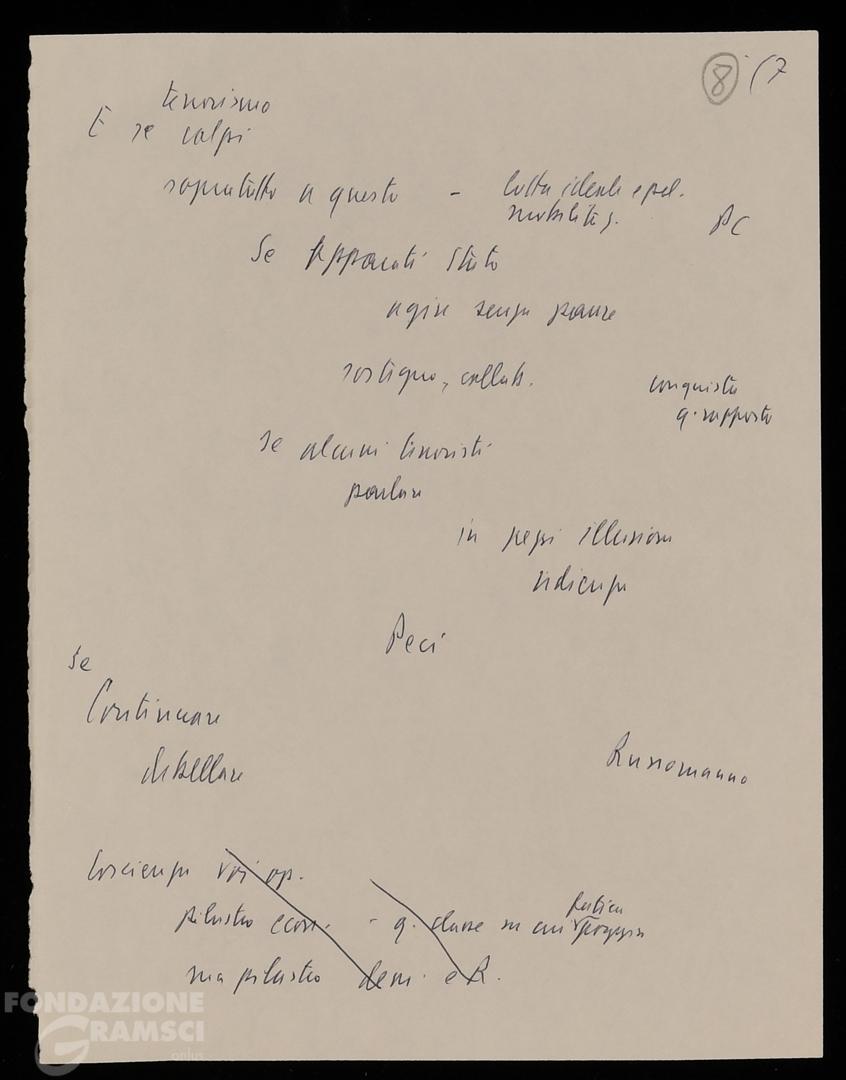 8 (7
terrorismo
E se colpi
sopratutto a questo - lotta ideale e pol.
mobilitaz.
PC
Se Apparati Stato
agire senza paure
sostegno, collab.
conquista
q. rapporto
se alcuni terroristi
parlare
in illusione
Peci
se
Continuare
debellare
Russomanno
Coscienza voi op.
pilastro econ. - q. classe su cui fatica poggia
ma pilastro dem. e R.
FONDAZIONE
GRAMSCI
onlus